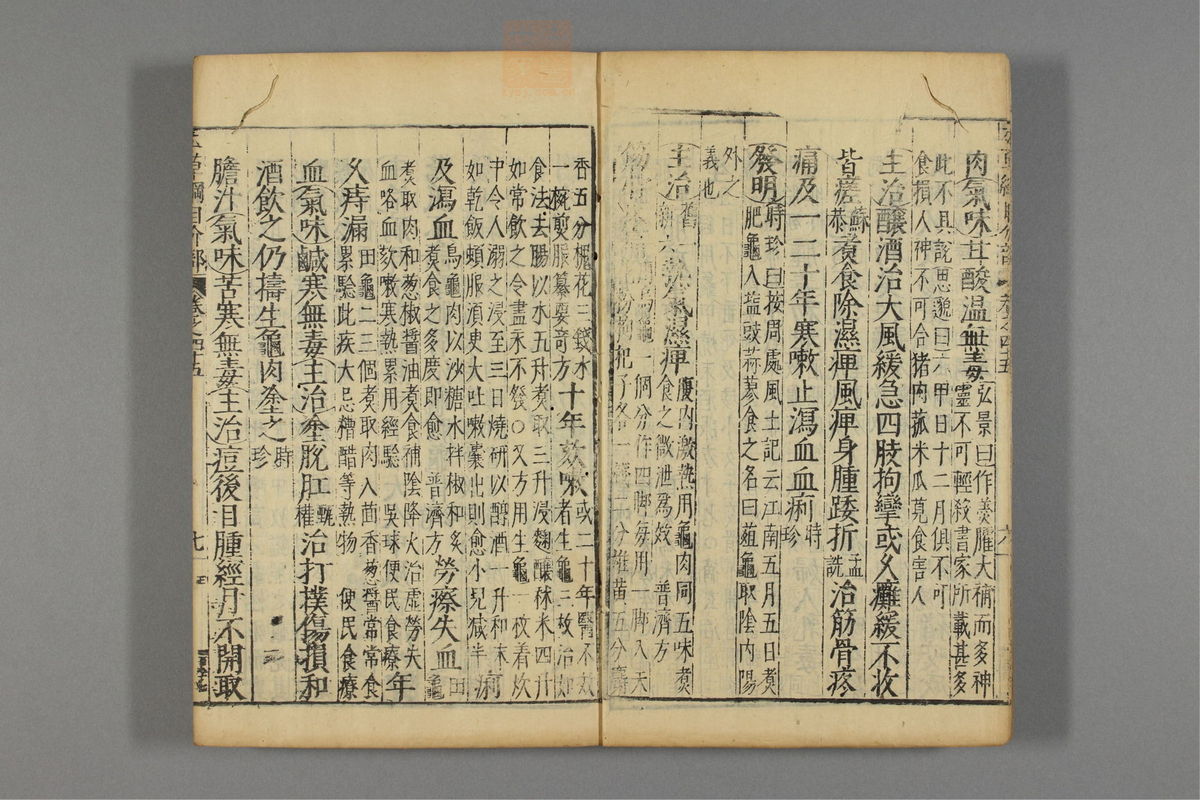 肉氣味甘酸温無毒弘景曰作羹臛大補而多神靈不可輕殺書家所載甚多
此不具說思邈曰六甲日十二月俱不可食損人神不可合猪肉菰米瓜莧食害人
主治釀酒治大風緩急四肢拘攣或久癱緩不收
皆瘥蘇恭煮食除濕痺風痺身腫踒折孟詵治筋骨疼
痛及一二十年寒嗽止瀉血血痢時珍
發明時珍曰按周處風土記云江南五月五日煮肥龜入鹽豉蒜蓼食之名曰葅龜取陰內陽
外之義也
主治熱氣濕痺腹內激熱用龜肉同五味煮食之微泄爲效普濟方
龜一個分作四脚每用一脚入天
枸杞子各一錢二分雄黃五分麝
香五分槐花三錢水一椀煎服纂要奇方十年欬嗽或二十年醫不效者生龜三枚治如
食法去腸以水五升煮取三升浸麴釀秫米四升如常飲之令盡永不發〇又方用生龜一枚着坎
中令人溺之浸至三日燒研以醇酒一升和末如乾飯頓服須臾大吐嗽囊出則愈小兒減半痢
及瀉血烏龜肉以沙糖水拌椒和炙煮食之多度即愈普濟方勞瘵失血田龜
煮取肉和葱椒醬油煮食補陰降火治虛勞失血咯血欬嗽寒熱累用經驗吳球便民食療年
久痔漏田龜二三個煮取肉入茴香葱醬常常食累驗此疾大忌糟醋等熱物便民食療
血氣味鹹寒無毒主治塗脫肛甄權治打撲傷損和
酒飲之仍擣生龜肉塗之時珍
膽汁氣味苦寒無毒主治痘後目腫經月不開取